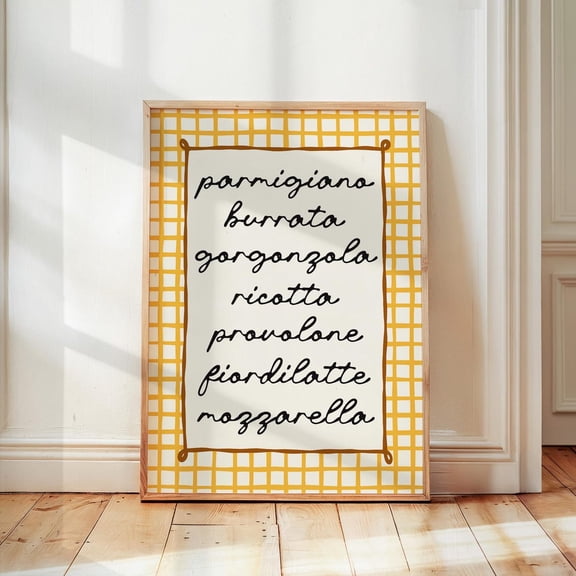 parmigiano
burrata
gorgonzola
ricotta
provolone
fiordilatte
mozzarella